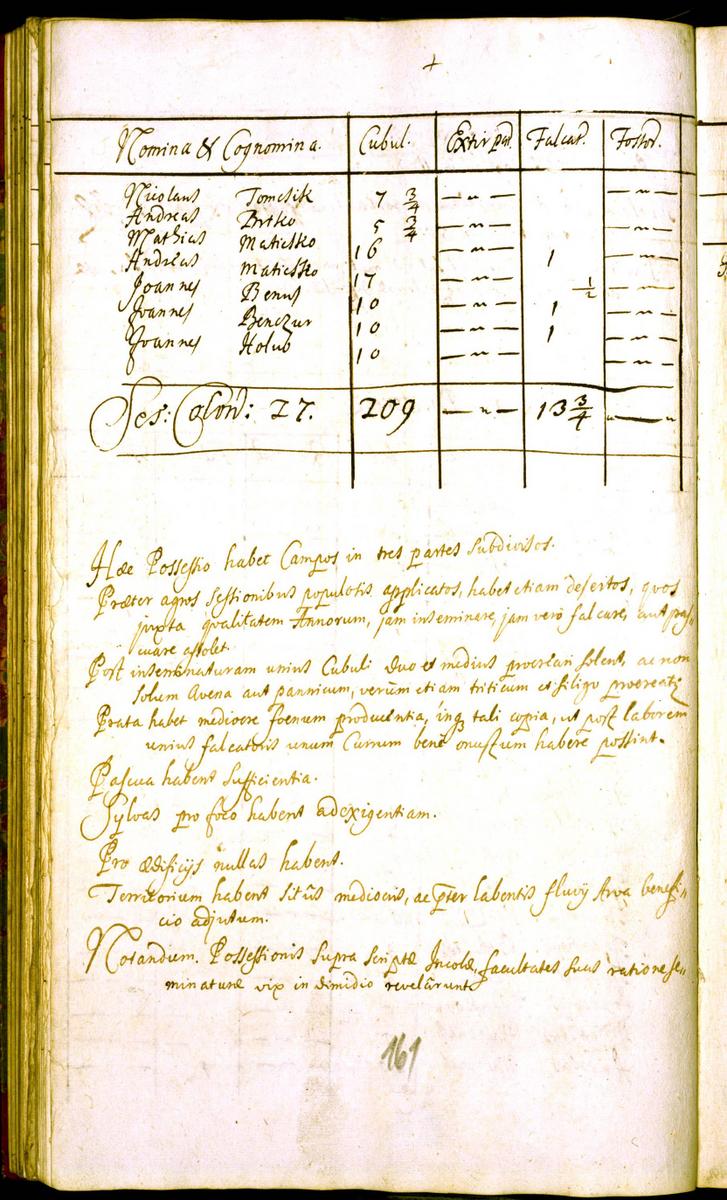 +
Nomina & Cognomina. Cubul. Extirpat. Falcat. Fossor.
Nicolaus Tomcsik 7 3/4 — " — — " —
Andreas Brisko 5 3/4 — " — — " —
Mathias Maticsko 16 — " — 1 — " —
Andreas Maticsko 17 — " — 1/2 — " —
Joannes Benus 10 — " — 1 — " —
Joannes Benczur 10 — " — 1 — " —
Joannes Holub 10 — " — — " —
Ses: Colon: 27. 209 — " — 13 3/4 " — "
Hæc Possessio habet Campos in tres partes subdivisos.
Præter agros sessionibus populatis applicatos, habet etiam desertos, quos
juxta qvalitatem Annorum, jam inseminare, jam verò falcare, aut pas„
cuare assolet.
Post inseminaturam unius Cubuli duo et medius procreari solent, ac non
solum Avena aut pannicum, verùm etiam triticum et siligo procreat:
Prata habet mediocre foenum producentia, inq tali copia, ut post laborem
unius falcatoris unum Currum benè onustum habere possint.
Pascua habent sufficientia.
Sylvas pro foco habent ad exigentiam.
Pro ædificijs nullas habent.
Territorium habent sitûs mediocris, ac pter labentis fluvij Arva benefi„
cio adjutum.
Notandum. Possessionis supra scriptæ Incolæ, facultates suas ratione se„
minaturæ vix in dimidio revelârunt
161